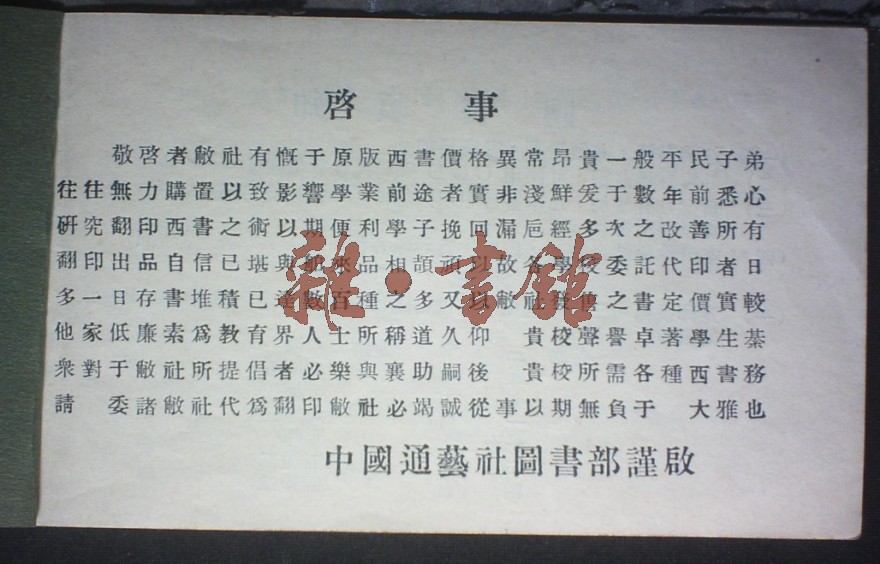 啓事
敬啓者敝社有慨于原版西書價格異常昂貴一般平民子弟
往往無力購置以致影響學業前途者實非淺鮮爰于數年前悉心
研究翻印西書之術以期便利學子挽回漏巵經多次之改善所有
翻印出品自信已堪與舶來品相頡頏以故各學校委託代印者日
多一日存書堆積已達數百種之多又以敝社發售之書定價實較
他家低廉素爲教育界人士所稱道久仰 貴校聲譽卓著學生蓁
衆對于敝社所提倡者必樂與襄助嗣後 貴校所需各種西書務
請 委諸敝社代爲翻印敝社必竭誠從事以期無負于 大雅也
中國通藝社圖書部謹啟
雜·書館